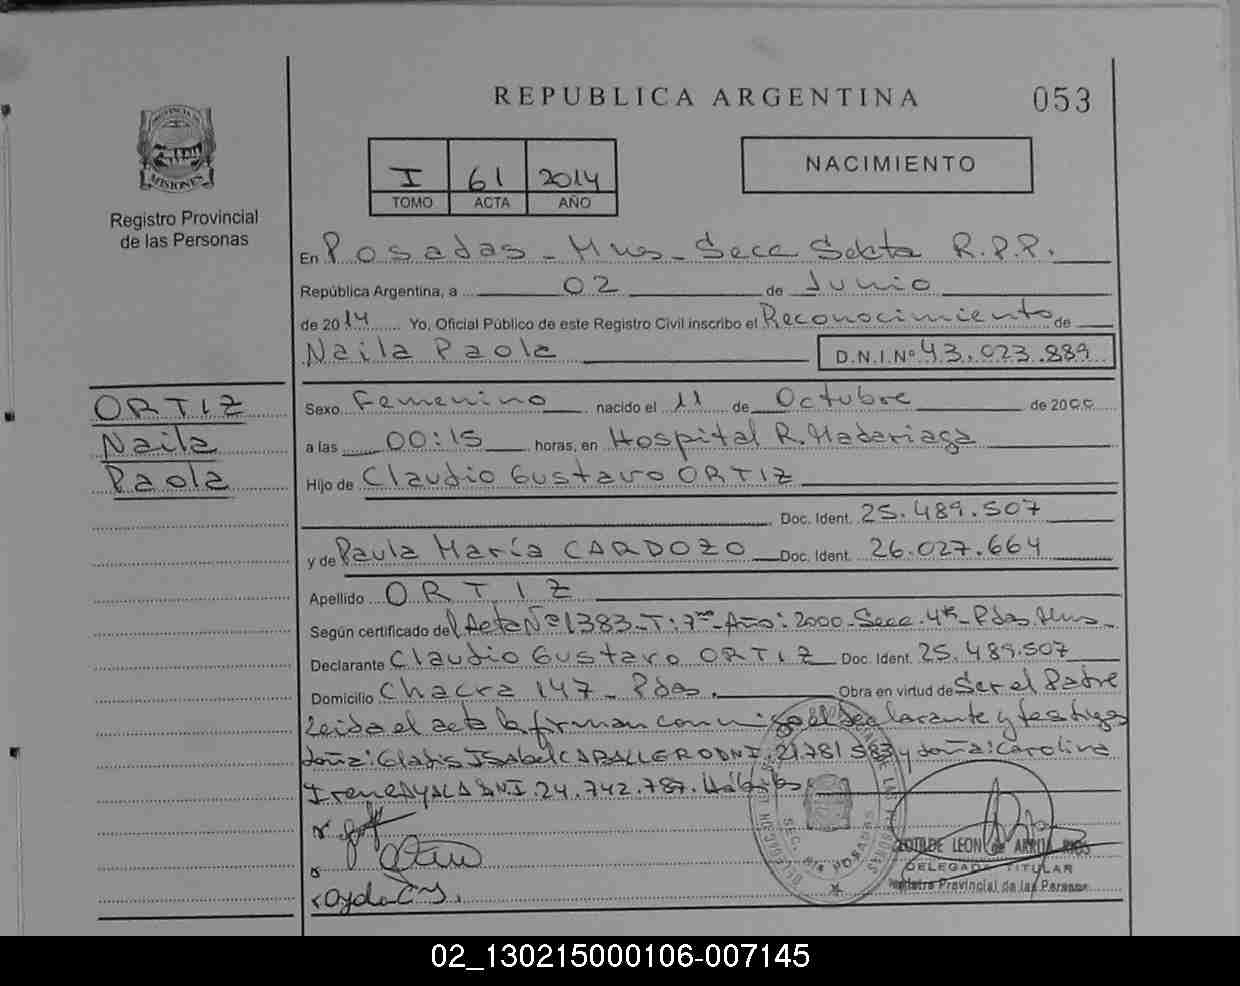 REPUBLICA ARGENTINA
053
PROVINCIA DE
MISIONES
Registro Provincial
de las Personas
I 61 2014
TOMO ACTA AÑO
NACIMIENTO
En Posadas - Mnes - Secc Sexta R.P.P.
República Argentina, a 02 de Junio
de 2014 Yo, Oficial Público de este Registro Civil inscribo el Reconocimiento de
Naila Paola D.N.I.Nº 43.023.889
ORTIZ
Naila
Paola
Sexo Femenino nacido el 11 de Octubre de 2000
a las 00:15 horas, en Hospital R. Madariaga
Hijo de Claudio Gustavo ORTIZ
Doc. Ident. 25.489.507
y de Paula María CARDOZO Doc. Ident. 26.027.664
Apellido ORTIZ
Según certificado del Acta Nº 1383 - T: 7 - Año: 2000 - Secc. 4ta - Pdas Mnes -
Declarante Claudio Gustavo ORTIZ Doc. Ident. 25.489.507
Domicilio Chacra 147 - Pdas. Obra en virtud de Ser el Padre
Leida el acta la firman conmigo el declarante y testigos
doña: Gladis Isabel CABALLERO DNI. 21.781.583 y doña: Carolina
Irene AYALA DNI. 24.742.787. Hábiles
LEON de
DELEGADA TITULAR
Registro Provincial de las Personas
02_130215000106-007145